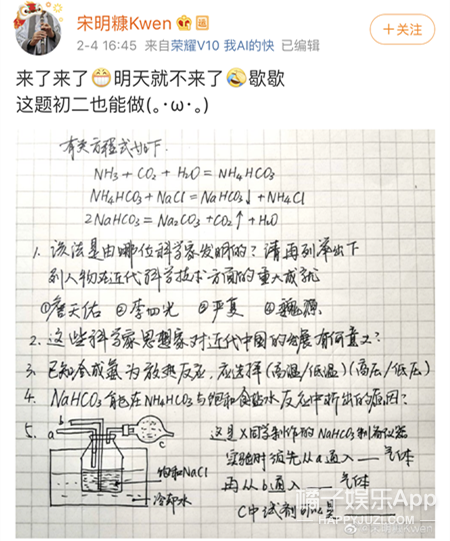 宋明糠Kwen
2-4 16:45 来自荣耀V10 我AI的快 已编辑
+关注
来了来了😁明天就不来了🤣歇歇
这题初二也能做(｡･ω･｡)
有关方程式如下.
NH₃ + CO₂ + H₂O = NH₄HCO₃
NH₄HCO₃ + NaCl = NaHCO₃↓ + NH₄Cl
2NaHCO₃ = Na₂CO₃ + CO₂↑ + H₂O
1. 该法是由哪位科学家发明的？请再列举出下
列人物在近代科学技术方面的重大成就
①詹天佑 ②李四光 ③严复 ④魏源
2. 这些科学家思想家对近代中国的发展有何意义？
3. 已知合成氨为放热反应，应选择(高温/低温)(高压/低压)
4. NaHCO₃能在NH₄HCO₃与饱和食盐水反应中析出的原因？
5.
b
a
c
饱和NaCl
冷却水
这是X同学制作的NaHCO₃制备仪器
实验时须先从a通入__气体
再从b通入__气体
C中试剂的
橘子娱乐App
HAPPYJUZI.COM